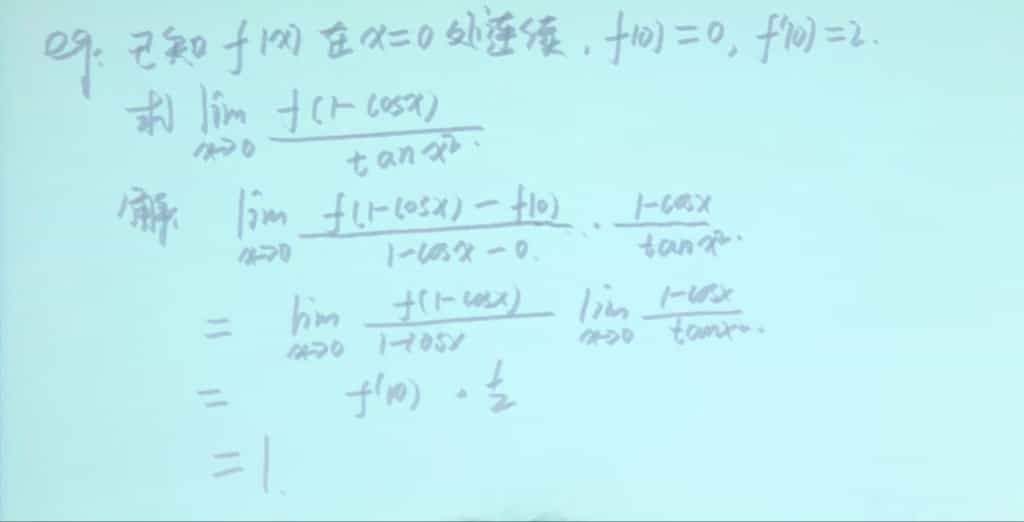 eg: 已知 f(x) 在 x=0 处连续, f(0)=0, f'(0)=2.
求 lim x→0 f(1-cosx) / tan x².
解: lim x→0 (f(1-cosx) - f(0)) / (1-cosx-0) · (1-cosx) / tan x².
= lim x→0 f(1-cosx) / (1-cosx) lim x→0 (1-cosx) / tan x².
= f'(0) · 1/2
= 1.